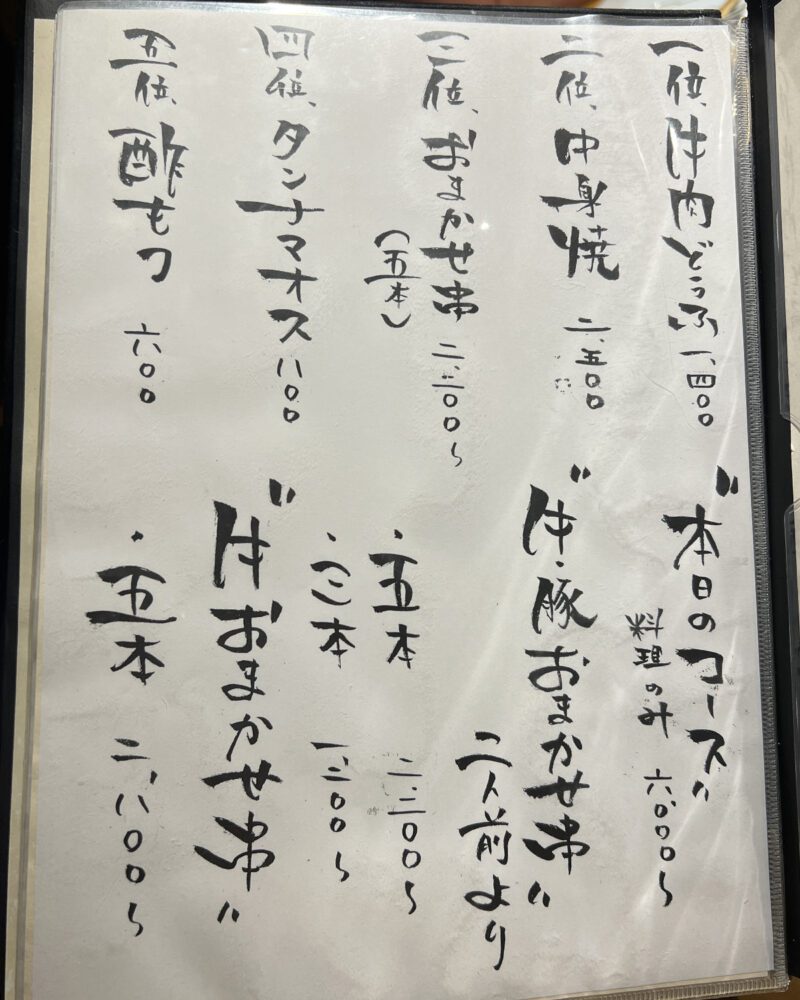 一位、牛肉どうふ 一、四〇〇
二位、中身焼 二、五〇〇
三位、おまかせ串 二、二〇〇〜
(五本)
四位、タンナマオス 八〇〇
五位、酢もつ 六〇〇
"本日のコース"
料理のみ 六、〇〇〇〜
"牛・豚おまかせ串"
二人前より
・五本 二、二〇〇〜
・三本 一、二〇〇〜
"牛おまかせ串"
・五本 二、八〇〇〜